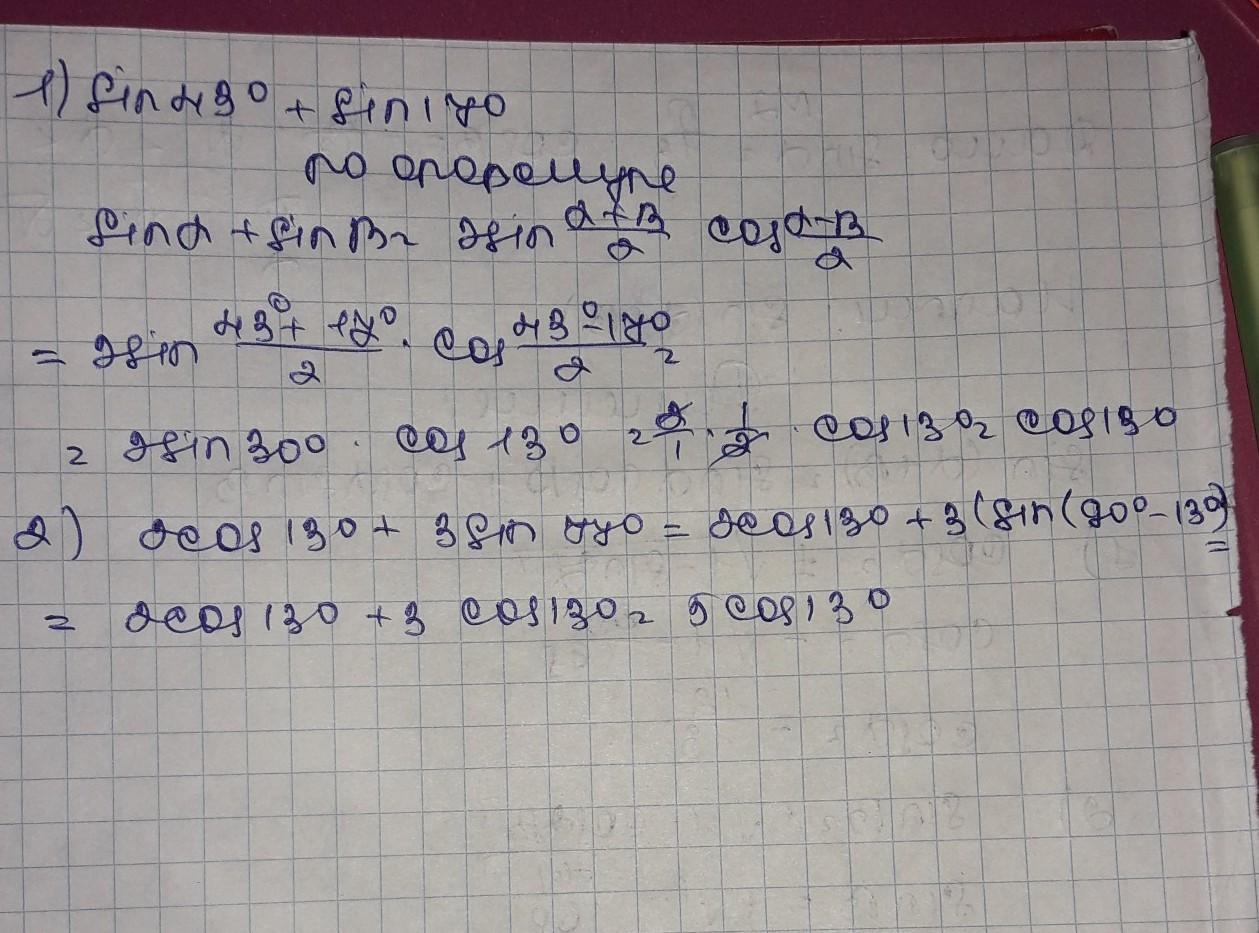 1) sin 43° + sin 17°
по формуле
sin α + sin β = 2 sin (α + β)/2 cos (α - β)/2
= 2 sin (43° + 17°)/2 · cos (43° - 17°)/2 =
= 2 sin 30° · cos 13° = 2/1 · 1/2 · cos 13° = cos 13°
2) 2 cos 13° + 3 sin 77° = 2 cos 13° + 3 (sin (90° - 13°) =
= 2 cos 13° + 3 cos 13° = 5 cos 13°